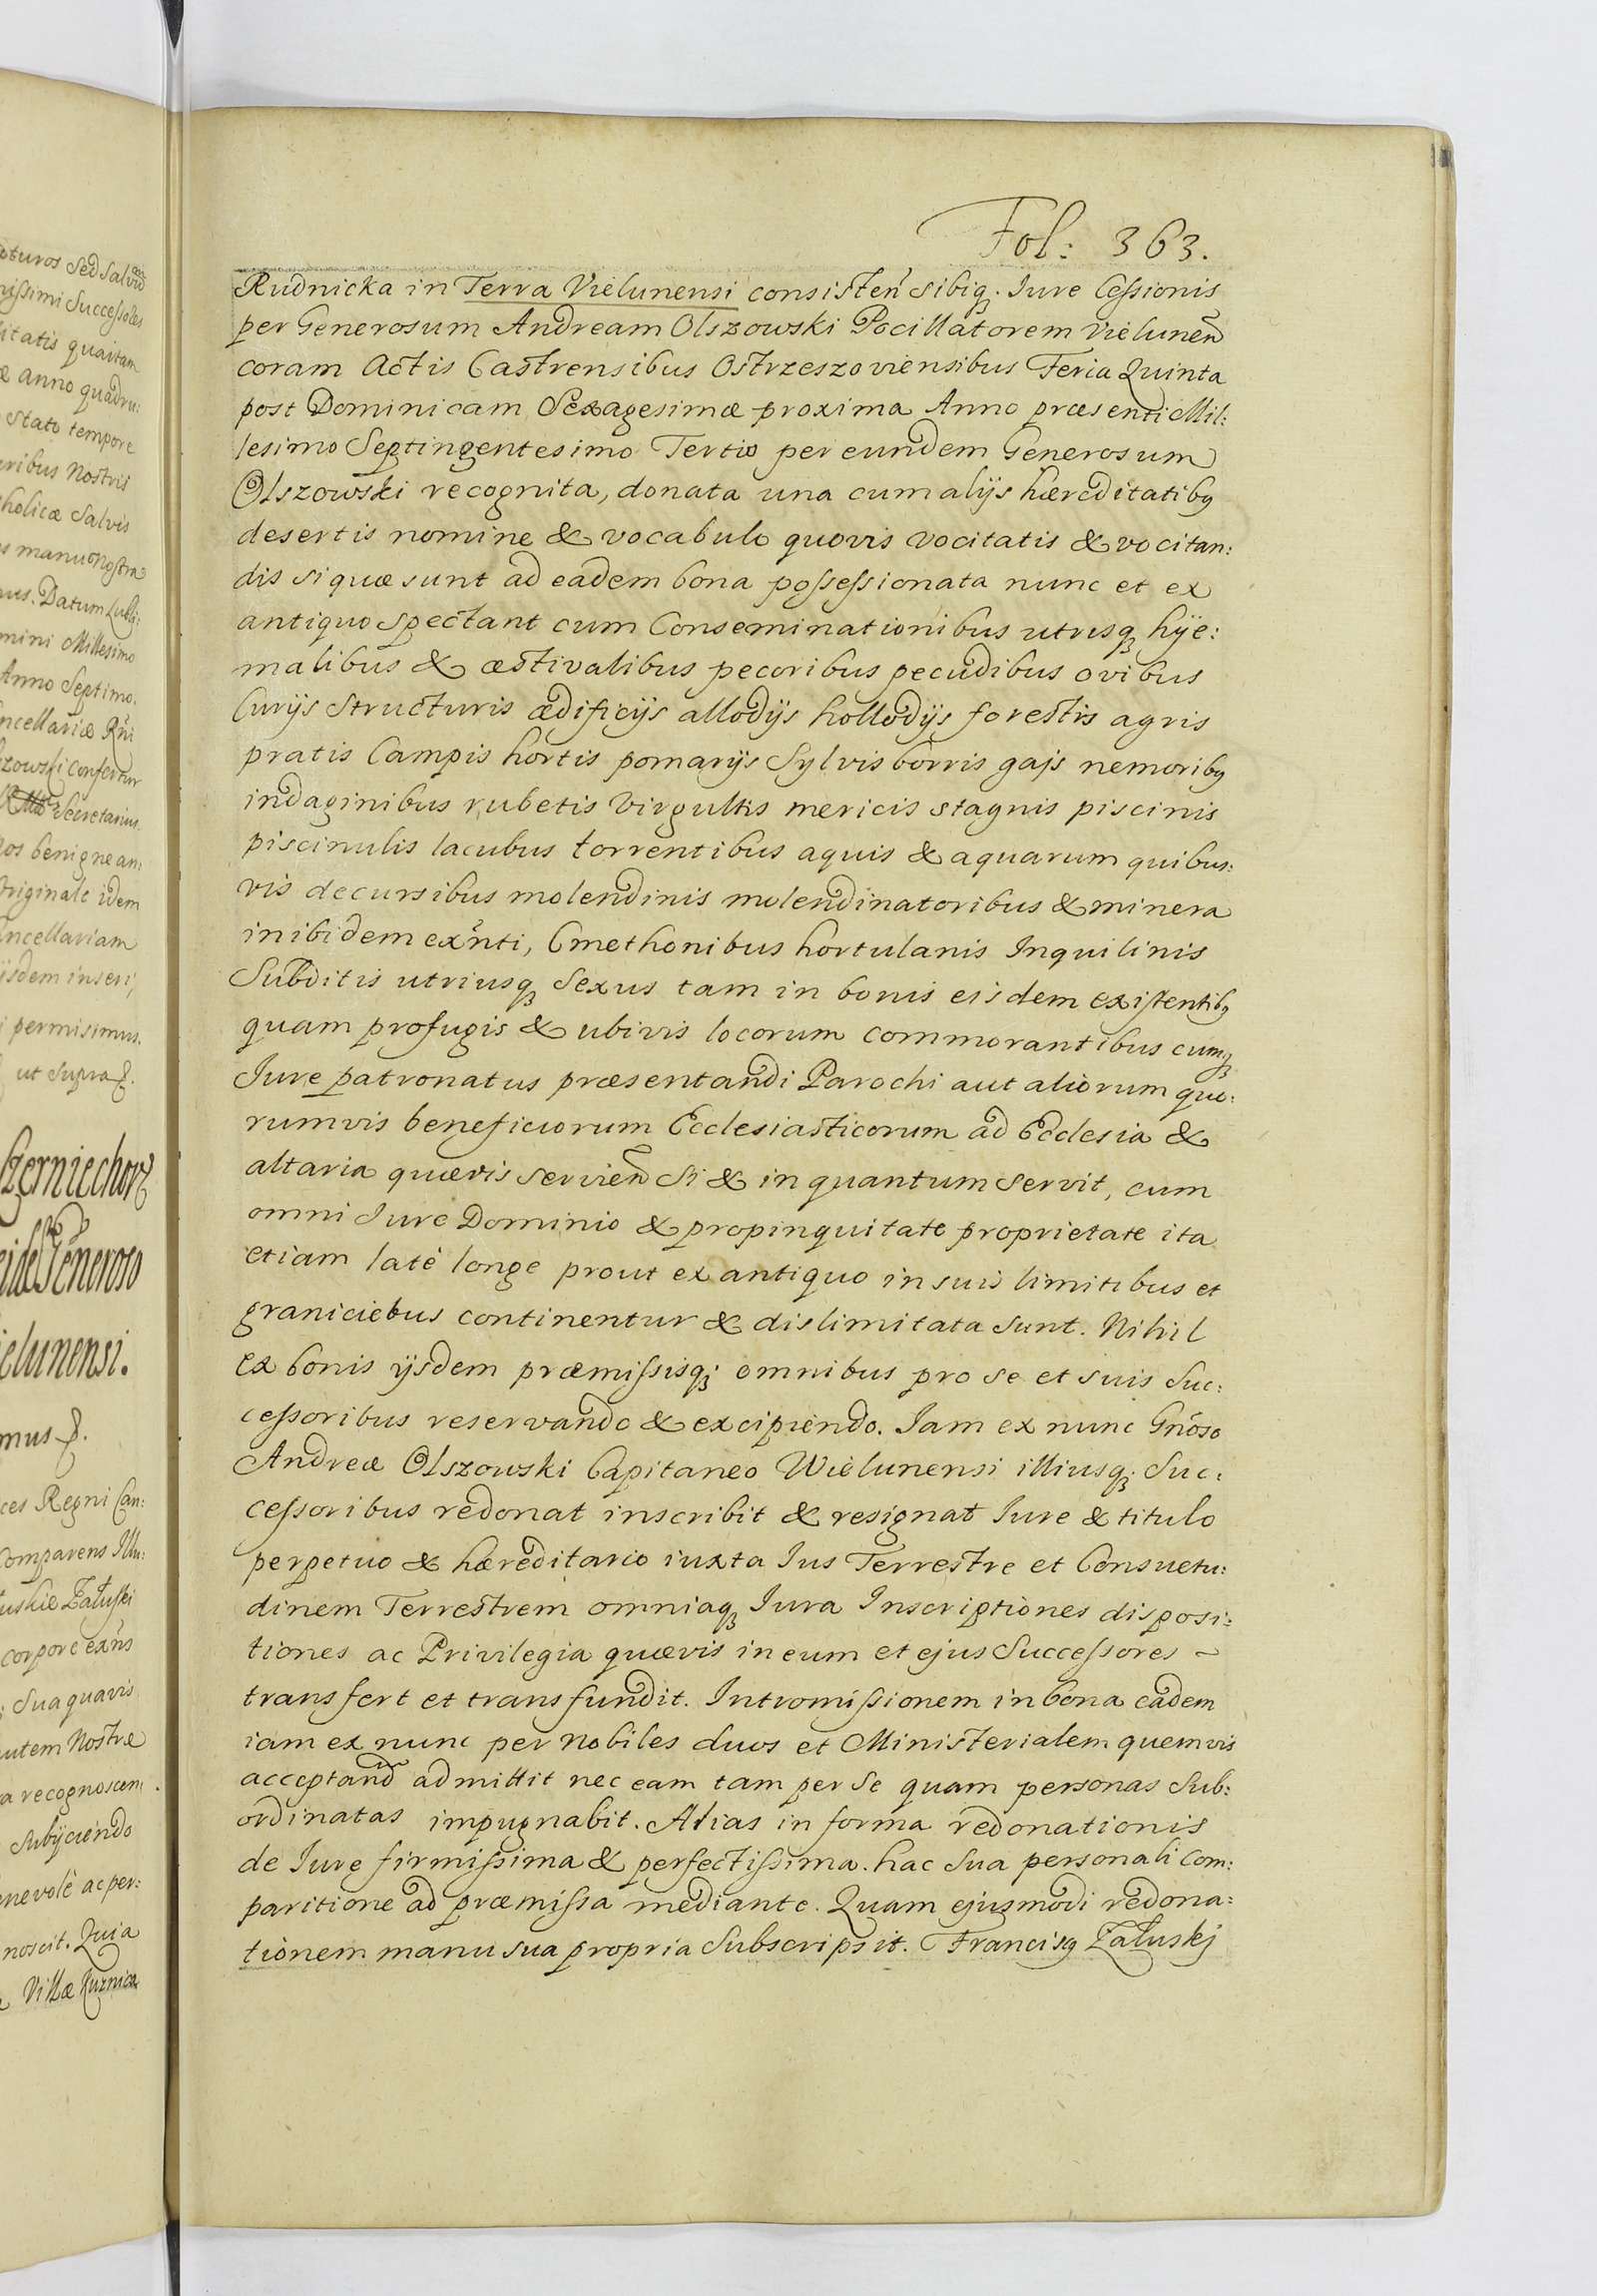 Fol: 363.
Rudnicka in Terra Vielunensi consisteñ sibiq₃. Iure Cessionis
per Generosum Andream Olszowski Pocillatorem Vieluneñ
coram Actis Castrensibus Ostrzeszoviensibus Feria Quinta
post Dominicam Sexagesimæ proxima Anno præsenti Mil:
lesimo Septingentesimo Tertio per eundem Generosum
Olszowski recognita, donata una cum alijs hæreditatibq
desertis nomine & vocabulo quovis vocitatis & vocitan:
dis si quæ sunt ad eadem bona possessionata nunc et ex
antiquo spectant cum Conseminationibus utrisq₃ hÿe:
malibus & æstivalibus pecoribus pecudibus ovibus
Curijs structuris ædificijs allodijs hollodijs forestis agris
pratis Campis hortis pomarijs Sylvis borris gajs nemoribq
indaginibus rubetis virgultis mericis stagnis piscinis
piscinulis lacubus torrentibus aquis & aquarum quibus:
vis decursibus molendinis molendinatoribus & minera
inibidem exñti, Cmethonibus hortulanis Inquilinis
Subditis utriusq₃ Sexus tam in bonis eisdem existentibq
quam profugis & ubivis locorum commorantibus cumq₃
Iure patronatus præsentandi Parochi aut aliorum quo:
rumvis beneficiorum Ecclesiasticorum ad Ecclesia &
altaria quævis servieñ si & in quantum servit, cum
omni Iure Dominio & propinquitate proprietate ita
etiam latè longe prout ex antiquo in suis limitibus et
graniciebus continentur & dislimitata sunt. Nihil
ex bonis ijsdem præmissisq₃ omnibus pro se et suis Suc:
cessoribus reservando & excipiendo. Iam ex nunc Gñoso
Andreæ Olszowski Capitaneo Wielunensi illiusq₃ Suc:
cessoribus redonat inscribit & resignat Iure & titulo
perpetuo & hæreditario iuxta Ius Terrestre et Consuetu:
dinem Terrestrem omniaq₃ Iura Inscriptiones disposi:
tiones ac Privilegia quævis in eum et ejus Successores ~
transfert et transfundit. Intromissionem in bona eadem
iam ex nunc per nobiles duos et Ministerialem quemvis
acceptand̃ admittit nec eam tam per se quam personas Sub:
ordinatas impugnabit. Alias in forma redonationis
de Iure firmissima & perfectissima. hac sua personali Com:
paritione ad præmissa mediante. Quam ejusmodi redona:
tionem manu sua propria subscripsit. Francisq Załuskj